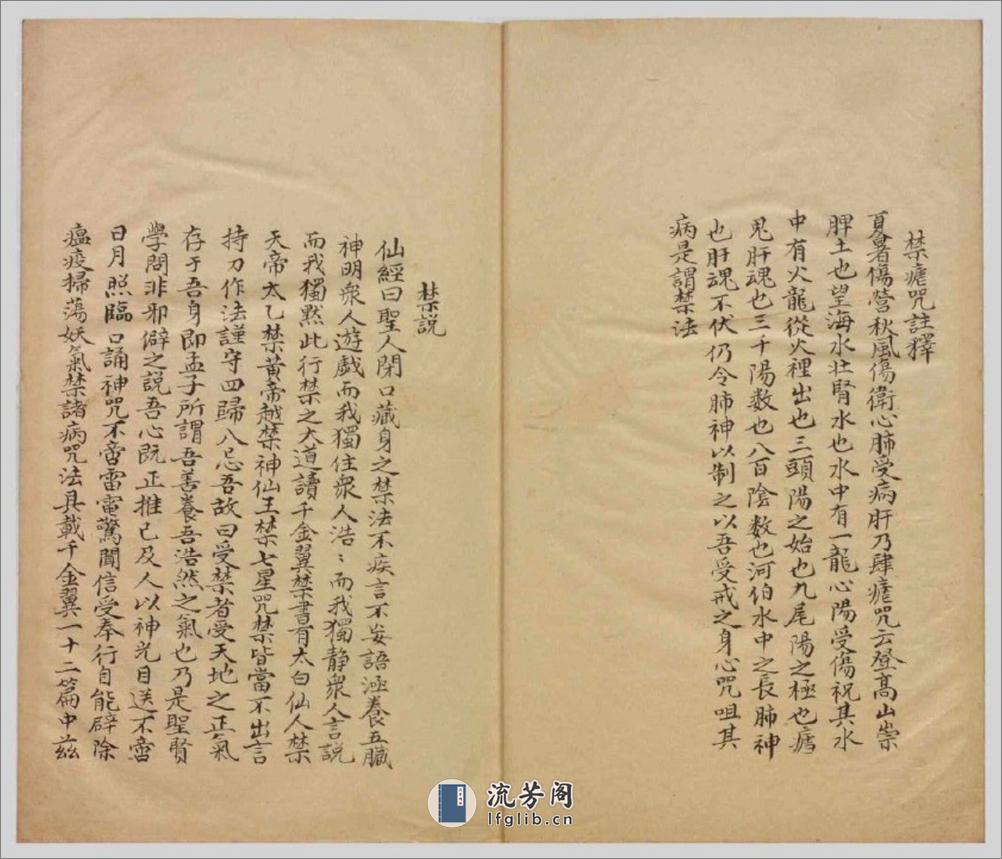 禁瘧咒註釋
夏暑傷營秋風傷衛心肺受病肝乃肆瘧咒云登高山崇
脾土也望海水壮腎水也水中有一龍心陽受傷祝其水
中有火龍從火裡出也三頭陽之始也九尾陽之極也瘧
鬼肝魂也三千陽数也八百陰数也河伯水中之長肺神
也肝魂不伏仍令肺神以制之以吾受戒之身心咒咀其
病是謂禁法
禁説
仙經曰聖人閉口藏身之禁法不疾言不妄語涵養五臓
神明衆人遊戲而我獨住衆人浩〻而我獨静衆人言説
而我獨黙此行禁之大道讀千金翼禁書有太白仙人禁
天帝太乙禁黄帝越禁神仙王禁七星咒禁皆當不出言
持刀作法謹守四歸八忌吾故曰受禁者受天地之正氣
存于吾身即孟子所謂吾善養吾浩然之氣也乃是聖賢
學問非邪僻之説吾心既正推己及人以神光目送不啻
日月照臨口誦神咒不啻雷電驚聞信受奉行自能辟除
瘟疫掃蕩妖氣禁諸病咒法具載千金翼一十二篇中茲
流芳阁
lfglib.cn